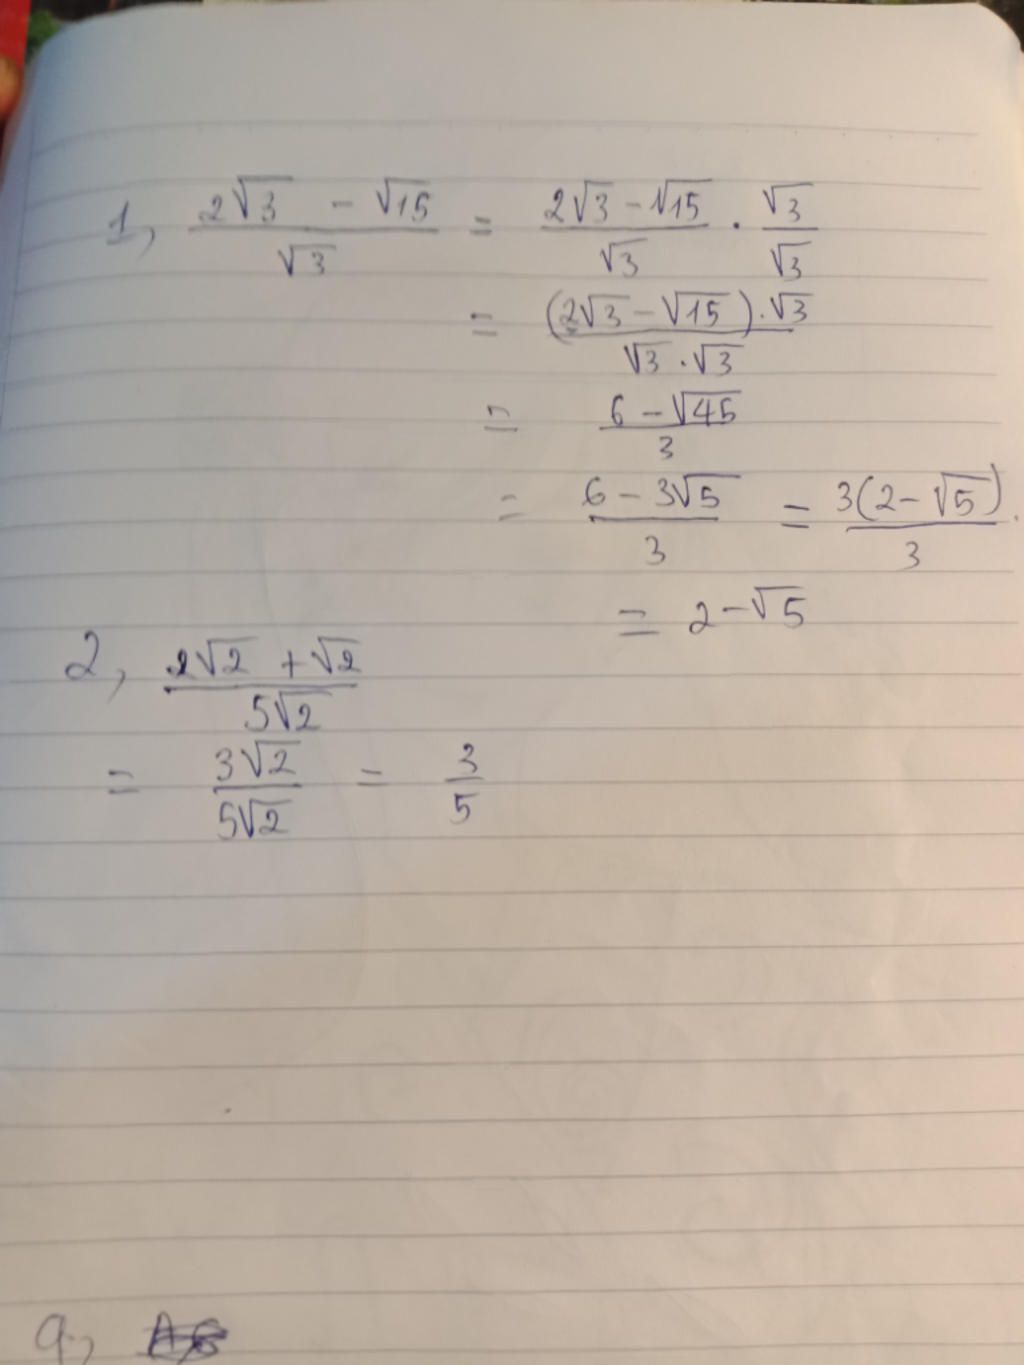 1, (2√3 - √15)/√3 = (2√3 - √15)/√3 · √3/√3
= ((2√3 - √15) · √3)/(√3 · √3)
= (6 - √45)/3
= (6 - 3√5)/3 = 3(2 - √5)/3.
= 2 - √5
2, (2√2 + √2)/(5√2)
= (3√2)/(5√2) = 3/5
9,